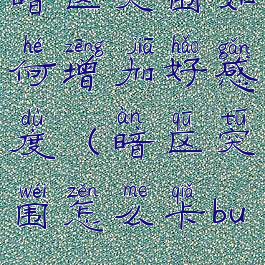 暗区突围如
hé zēng jiā hǎo gǎn
何增加好感
dù àn qū tū
度（暗区突
wéi zěn me qiǎ
围怎么卡bu